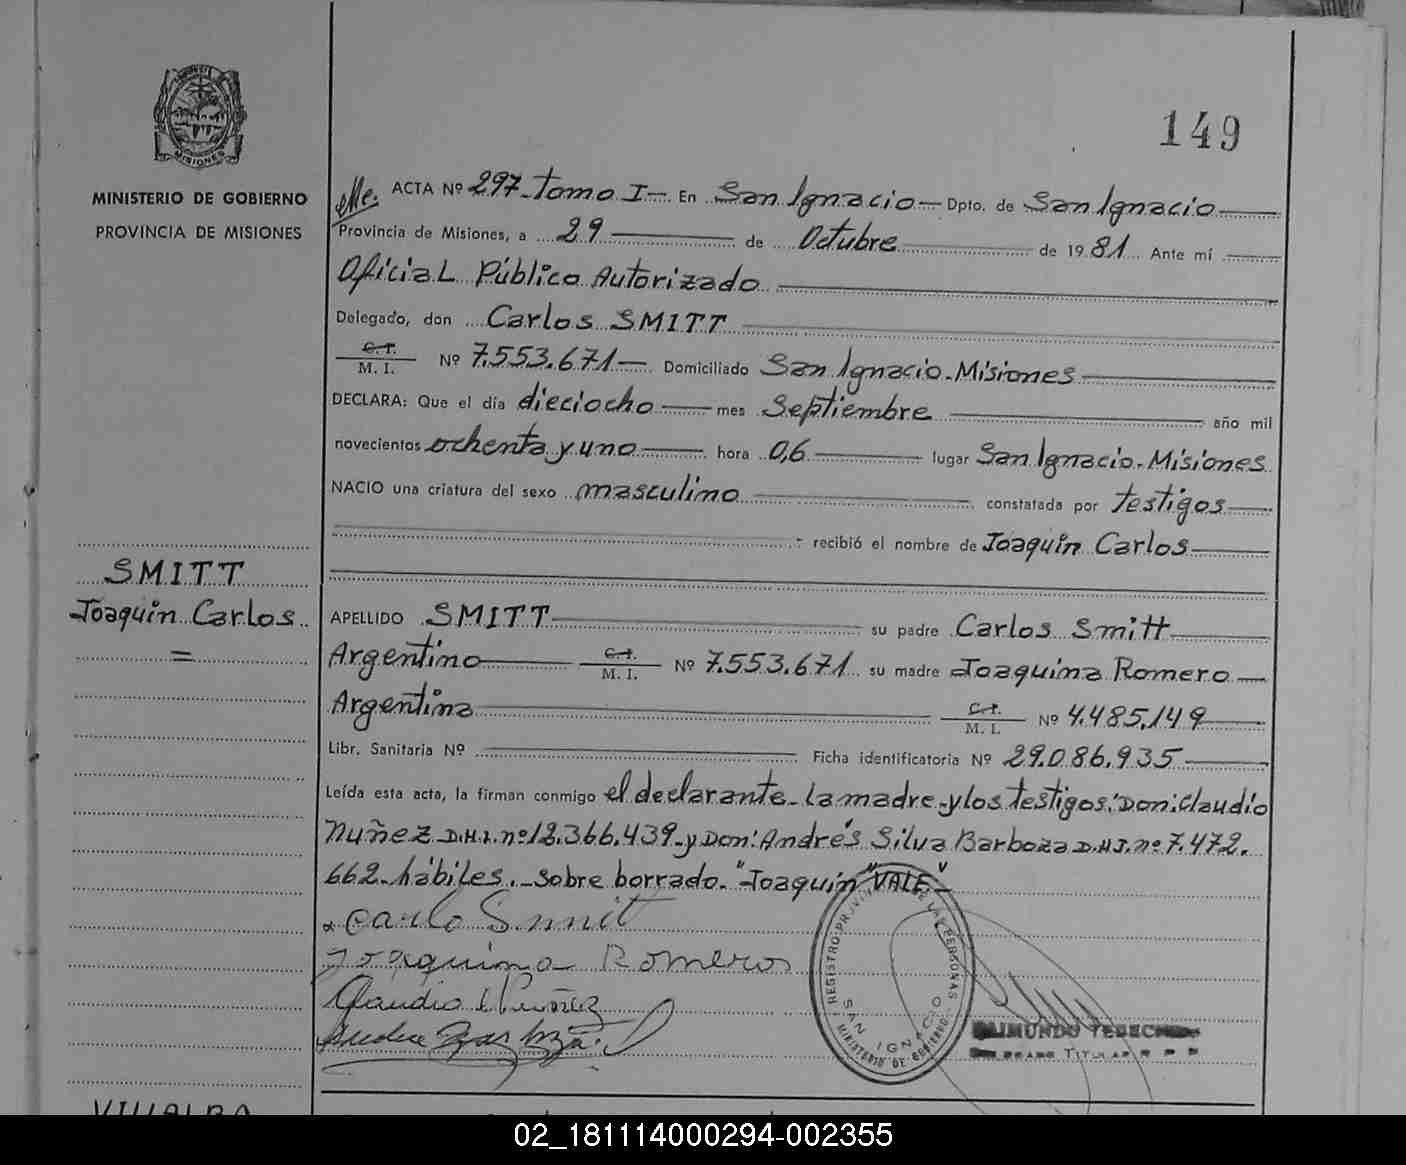 149
MISIONES
MINISTERIO DE GOBIERNO
PROVINCIA DE MISIONES
SMITT
Joaquín Carlos
=
ACTA Nº 297 Tomo I En San Ignacio Dpto. de San Ignacio
Provincia de Misiones, a 29 de Octubre de 1981 Ante mí
Oficial Público Autorizado
Delegado, don Carlos SMITT
C.I.
M. I. Nº 7.553.671 Domiciliado San Ignacio-Misiones
DECLARA: Que el día dieciocho mes Septiembre año mil
novecientos ochenta y uno hora 0,6 lugar San Ignacio-Misiones
NACIO una criatura del sexo masculino constatada por testigos
recibió el nombre de Joaquín Carlos
APELLIDO SMITT su padre Carlos Smitt
Argentino C.I. M. I. Nº 7.553.671 su madre Joaquina Romero
Argentina C.I. M. I. Nº 4.485.149
Libr. Sanitaria Nº Ficha identificatoria Nº 29.086.935
Leída esta acta, la firman conmigo el declarante-la madre-y los testigos: Don: Claudio
Nuñez D.N.I. nº 12.366.439-y Don: Andrés Silva Barboza D.N.I. nº 7.472.
662-hábiles.-sobre borrado-"Joaquín" "VALE"-
Carlo Smit
Joaquina Romero
Claudio Nuñez
REGISTRO PROVINCIAL DE LAS PERSONAS
SAN IGNACIO
MINISTERIO DE GOBIERNO
RAIMUNDO
TITULAR
VILLALBA
02_181114000294-002355